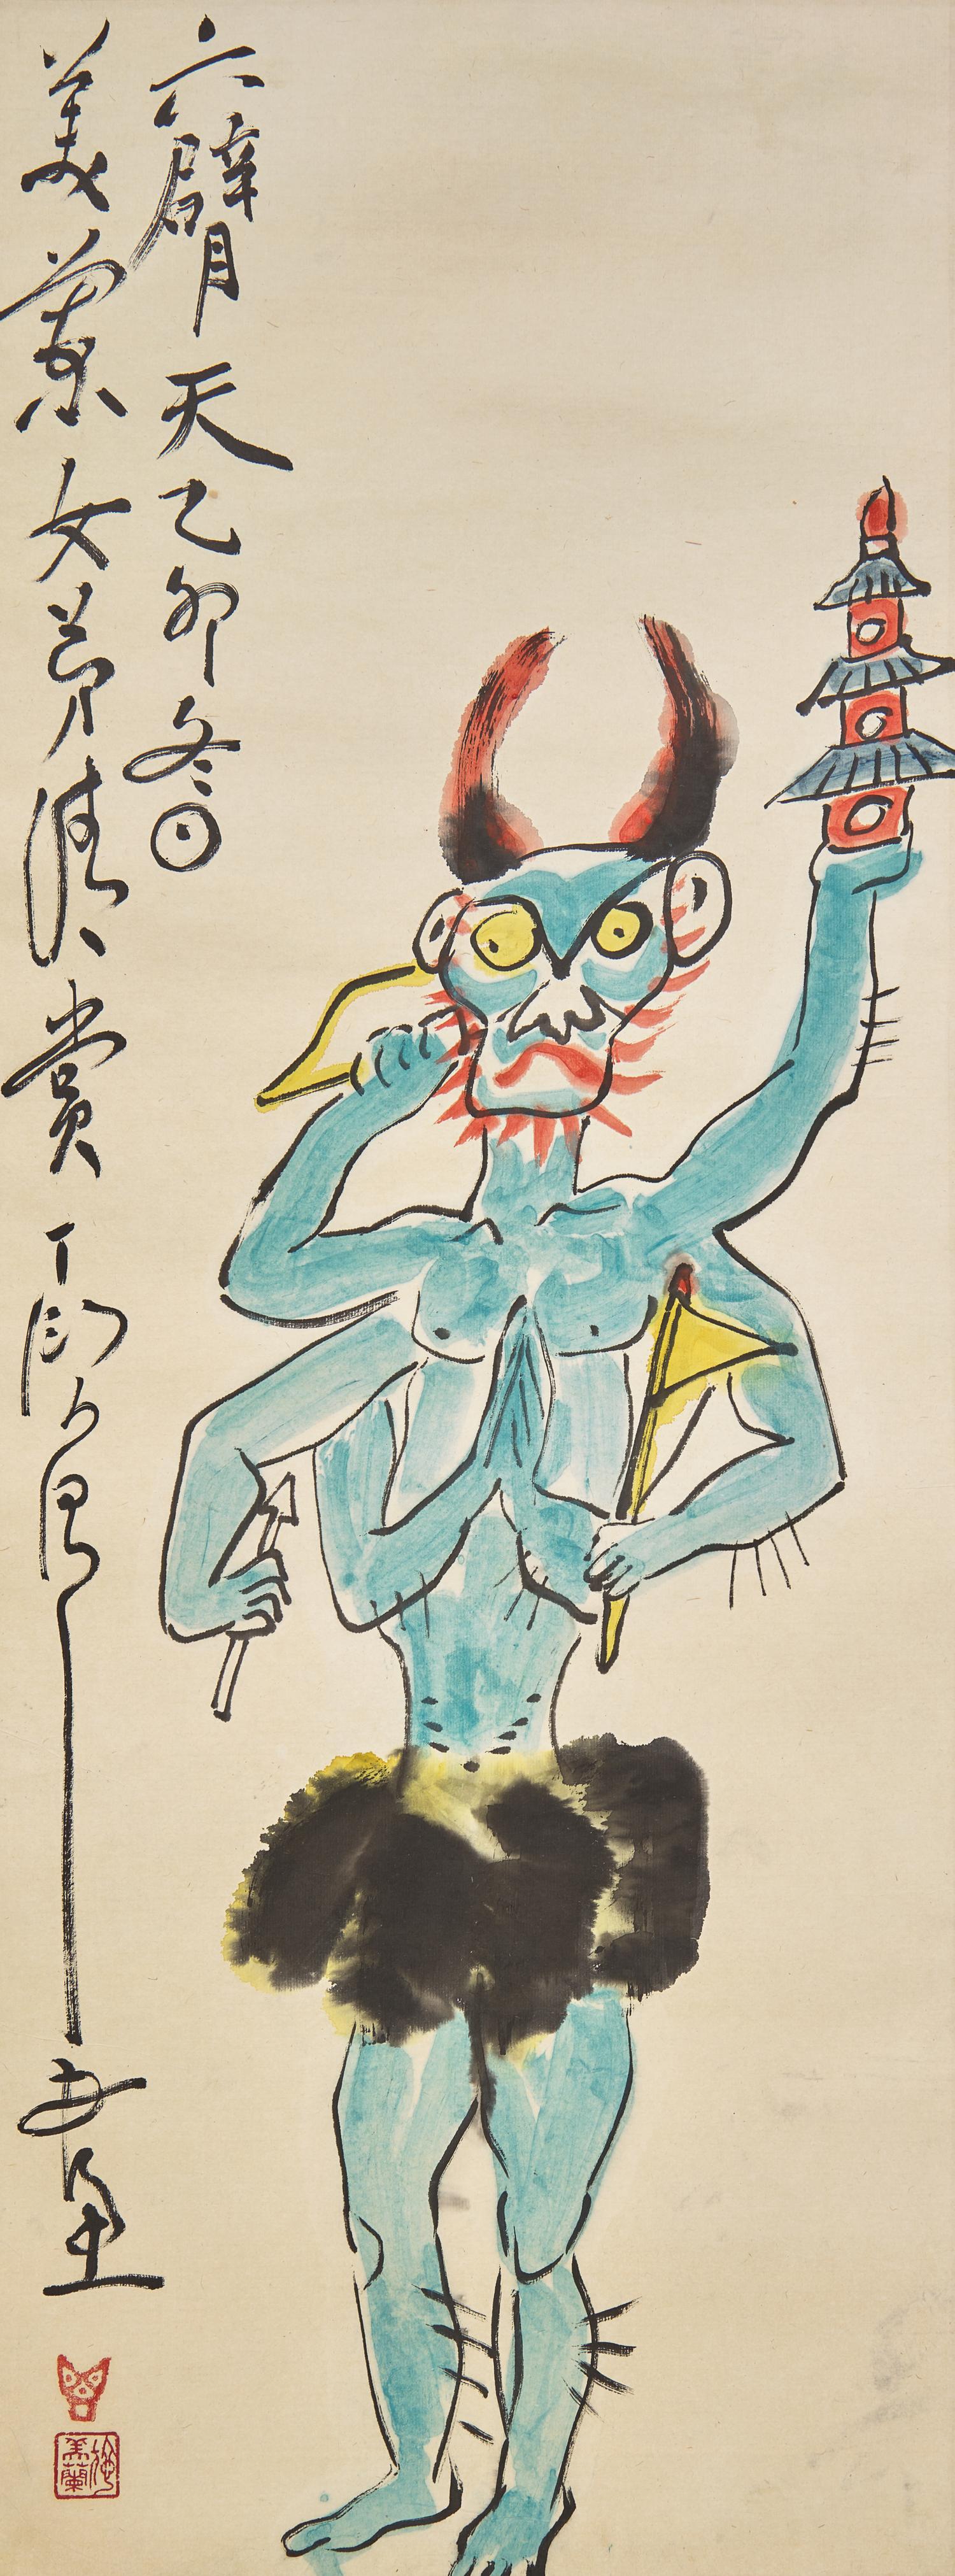 六臂天乙卯冬日
美蘭女弟清賞丁衍庸
美蘭